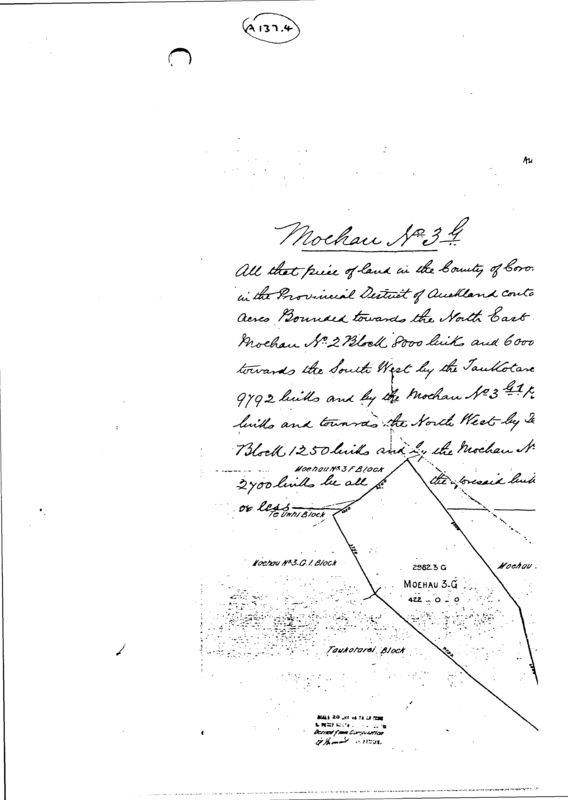 A137.4
Au
Moehau No 3 G.
All that piece of land in the County of Coro
in the Provincial District of Auckland conta
acres Bounded towards the North East
Moehau No 2 Block 8000 links and 6000
towards the South West by the Taukotarae
9792 links and by the Moehau No 3 G 1
links and towards the North West by Te
Block 1250 links and by the Moehau N.
Moehau No 3.F Block
2700 links be all the foresaid link
or less
Te Unhi Block
Moehau No 3.G.1. Block
2982.3 G
Moehau.
MOEHAU 3.G
422 - 0 - 0
Taukotarai Block
Derived from Computation